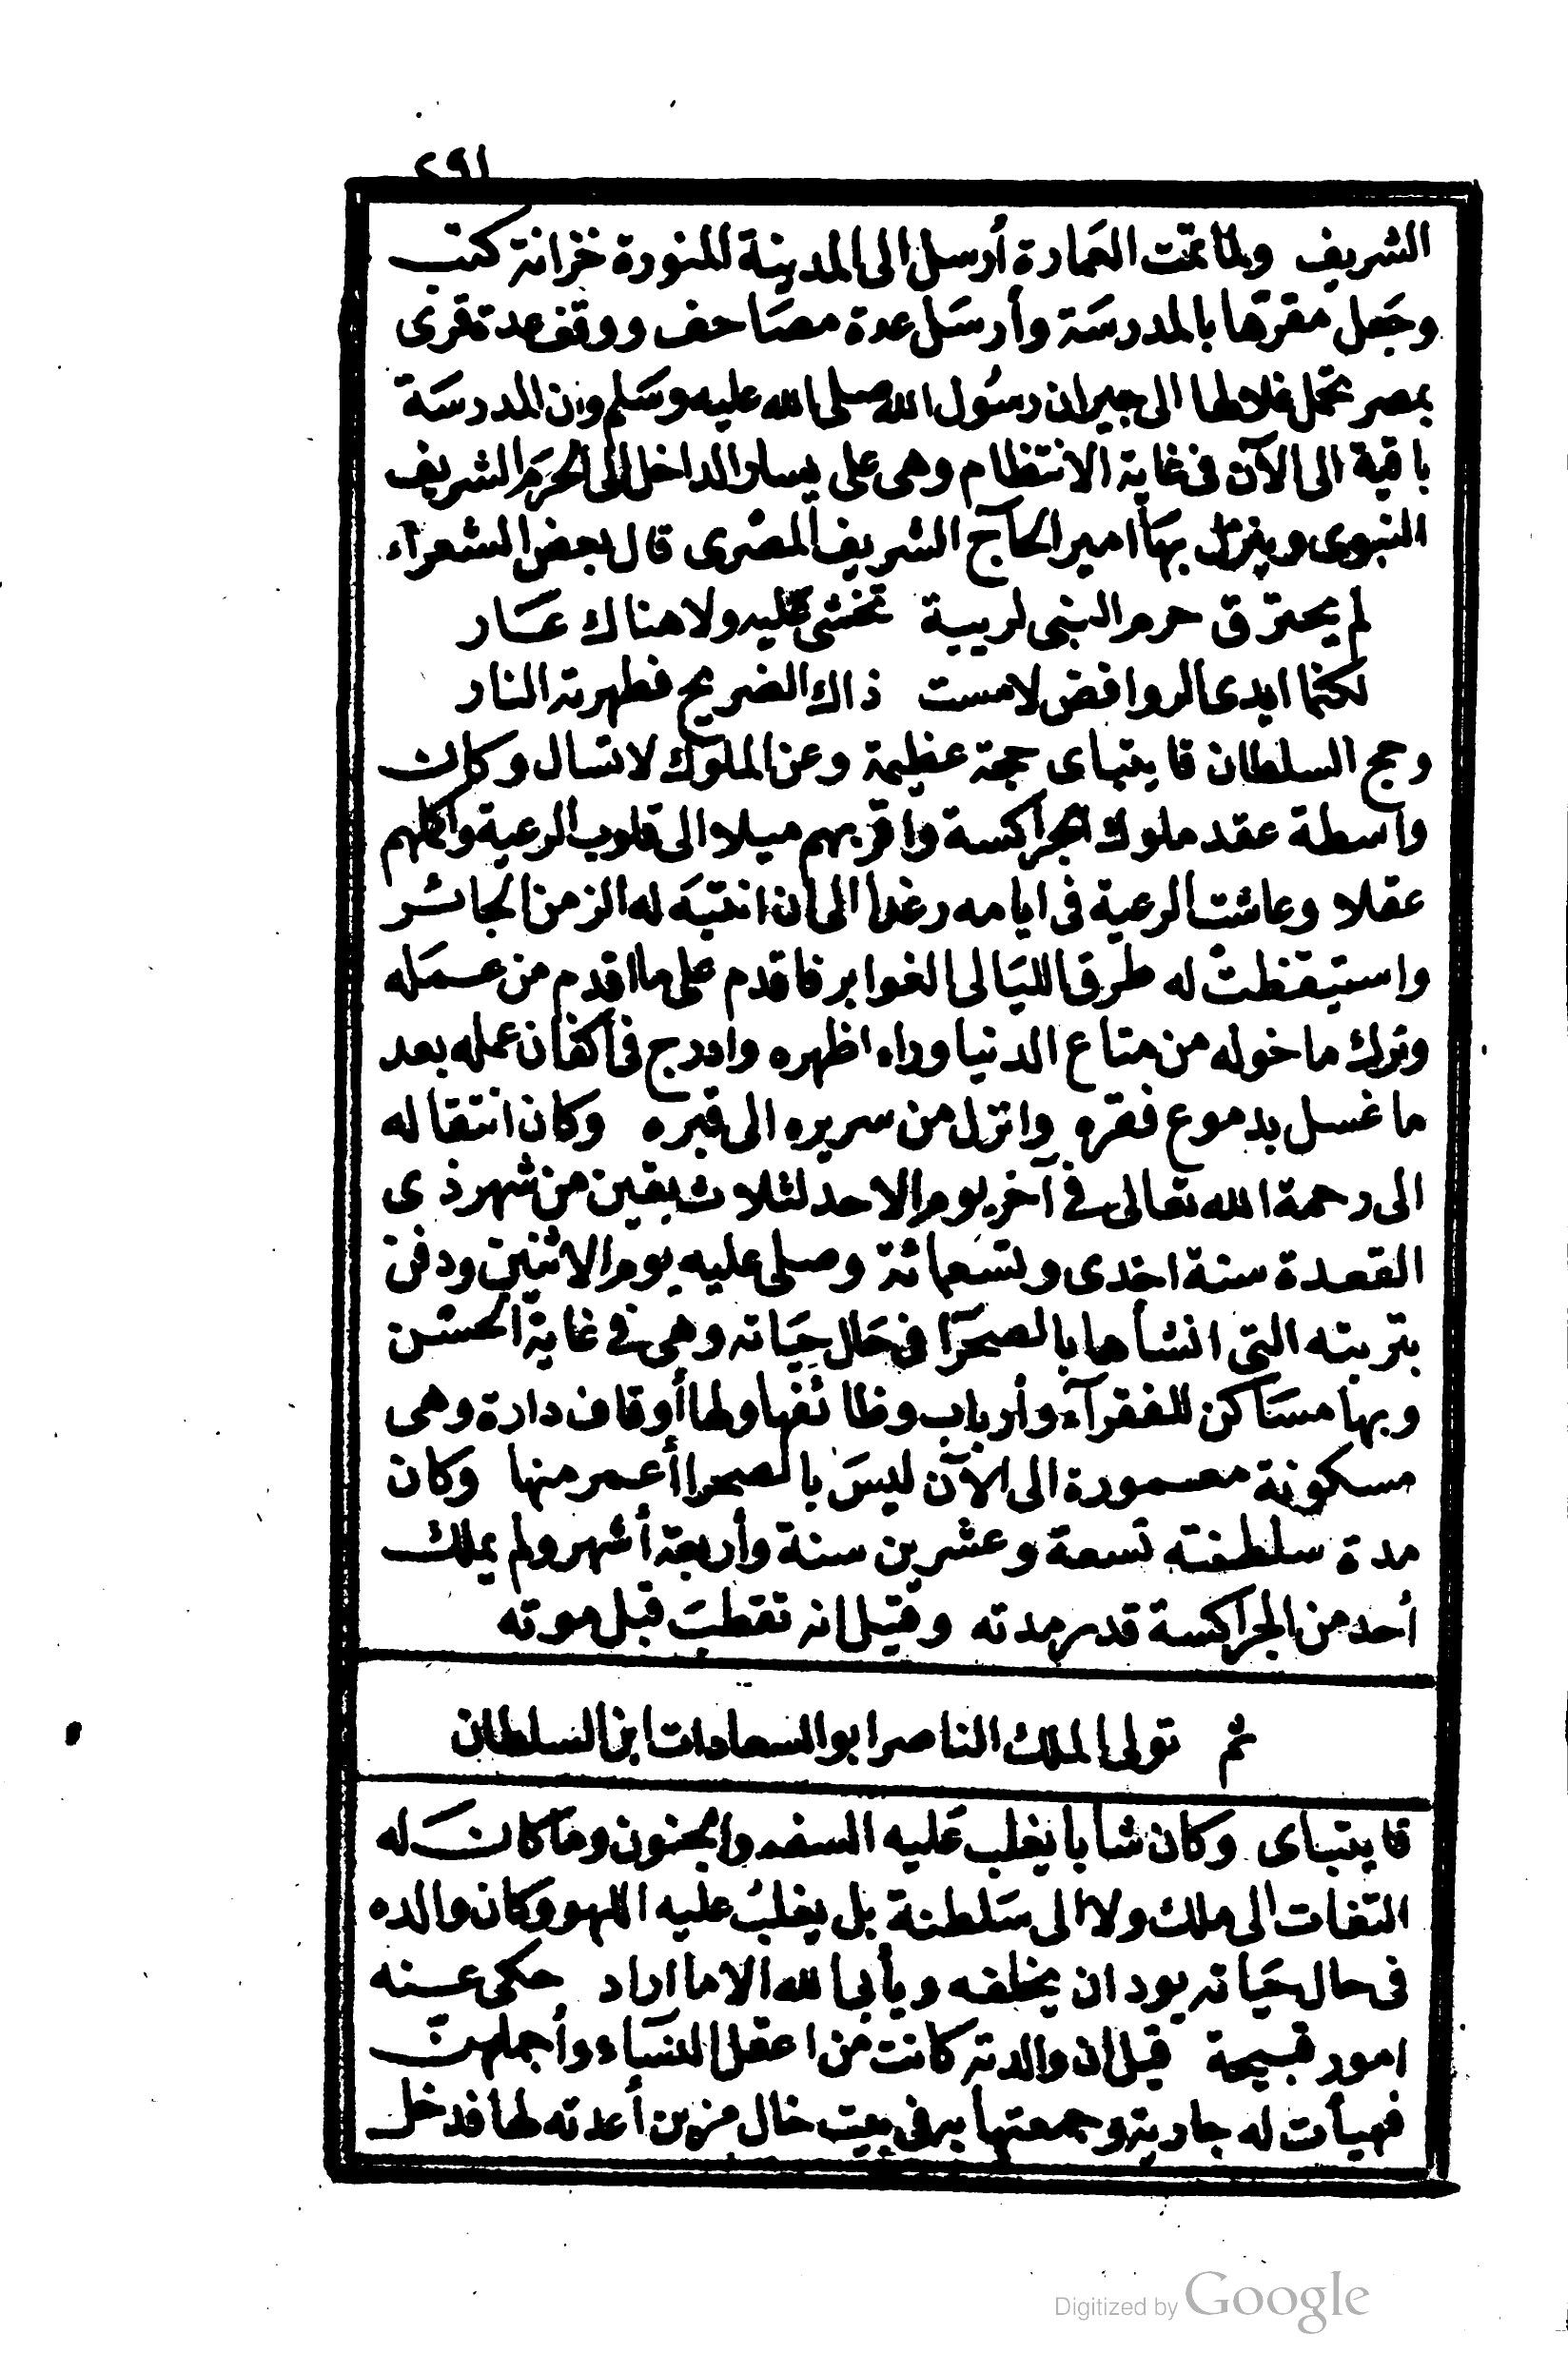 ٢٩١
الشريف ولما تمت العمارة أرسل الى المدينة المنورة خزانة كتب
وجعل مقرها بالمدرسة وأرسل عدة مصاحف ووقف عدة قرى
بمصر تحمل غلاطها الى جيران رسول الله صلى الله عليه وسلم وان المدرسة
باقية الى الآن فى غاية الانتظام وهى على يسار الداخل الى الحرم الشريف
النبوى وينزل بها امير الحاج الشريف المصرى قال بعض الشعرآء
لم يحترق حرم النبى لريبة تخشى عليه ولا هناك عار
لكنما ايدى الروافض لامست ذاك الضريح فطهرته النار
وحج السلطان قايتباى حجة عظيمة وعن الملوك لا تسال وكان
واسطة عقد ملوك الجراكسة واقربهم ميلا الى قلوب الرعية واكملهم
عقلا وعاشت الرعية فى ايامه رغدا الى ان انتبه له الزمن الجائر
واستيقظت له طرق الليالى الغوابر فاقدم على ما اقدم من عمله
وترك ما خوله من متاع الدنيا وراء اظهره وادرج فى اكفان عمله بعد
ما غسل بدموع فقره وانزل من سريره الى قبره وكان انتقاله
الى رحمة الله تعالى فى آخر يوم الاحد لثلاث بقين من شهر ذى
القعدة سنة احدى وتسعمائة وصلى عليه يوم الاثنين ودفن
بتربته التى انشأها بالصحرا فى حال حياته وهى فى غاية الحسن
وبها مساكن للفقرآء وأرباب وظائفها ولها أوقاف دارة وهى
مسكونة معمورة الى الآن ليس بالصحرا أعمر منها وكان
مدة سلطنته تسعة وعشرين سنة وأربعة أشهر ولم يملك
أحد من الجراكسة قدر مدته وقيل انه تقطب قبل موته
ثم تولى الملك الناصر ابو السعادات ابن السلطان
قايتباى وكان شابا يغلب عليه السفه والجنون وما كان له
التفات الى ملك ولا الى سلطنة بل يغلب عليه اللهو وكان والده
فى حال حياته يود ان يخلفه ويأبى الله الا ما اراد حكى عنه
امور قبيحة قيل ان والدته كانت من اعقل النساء وأجملهن
فهيأت له جارية وجمعتها به فى بيت خال مزين أعدته لها فدخل
Digitized by Google